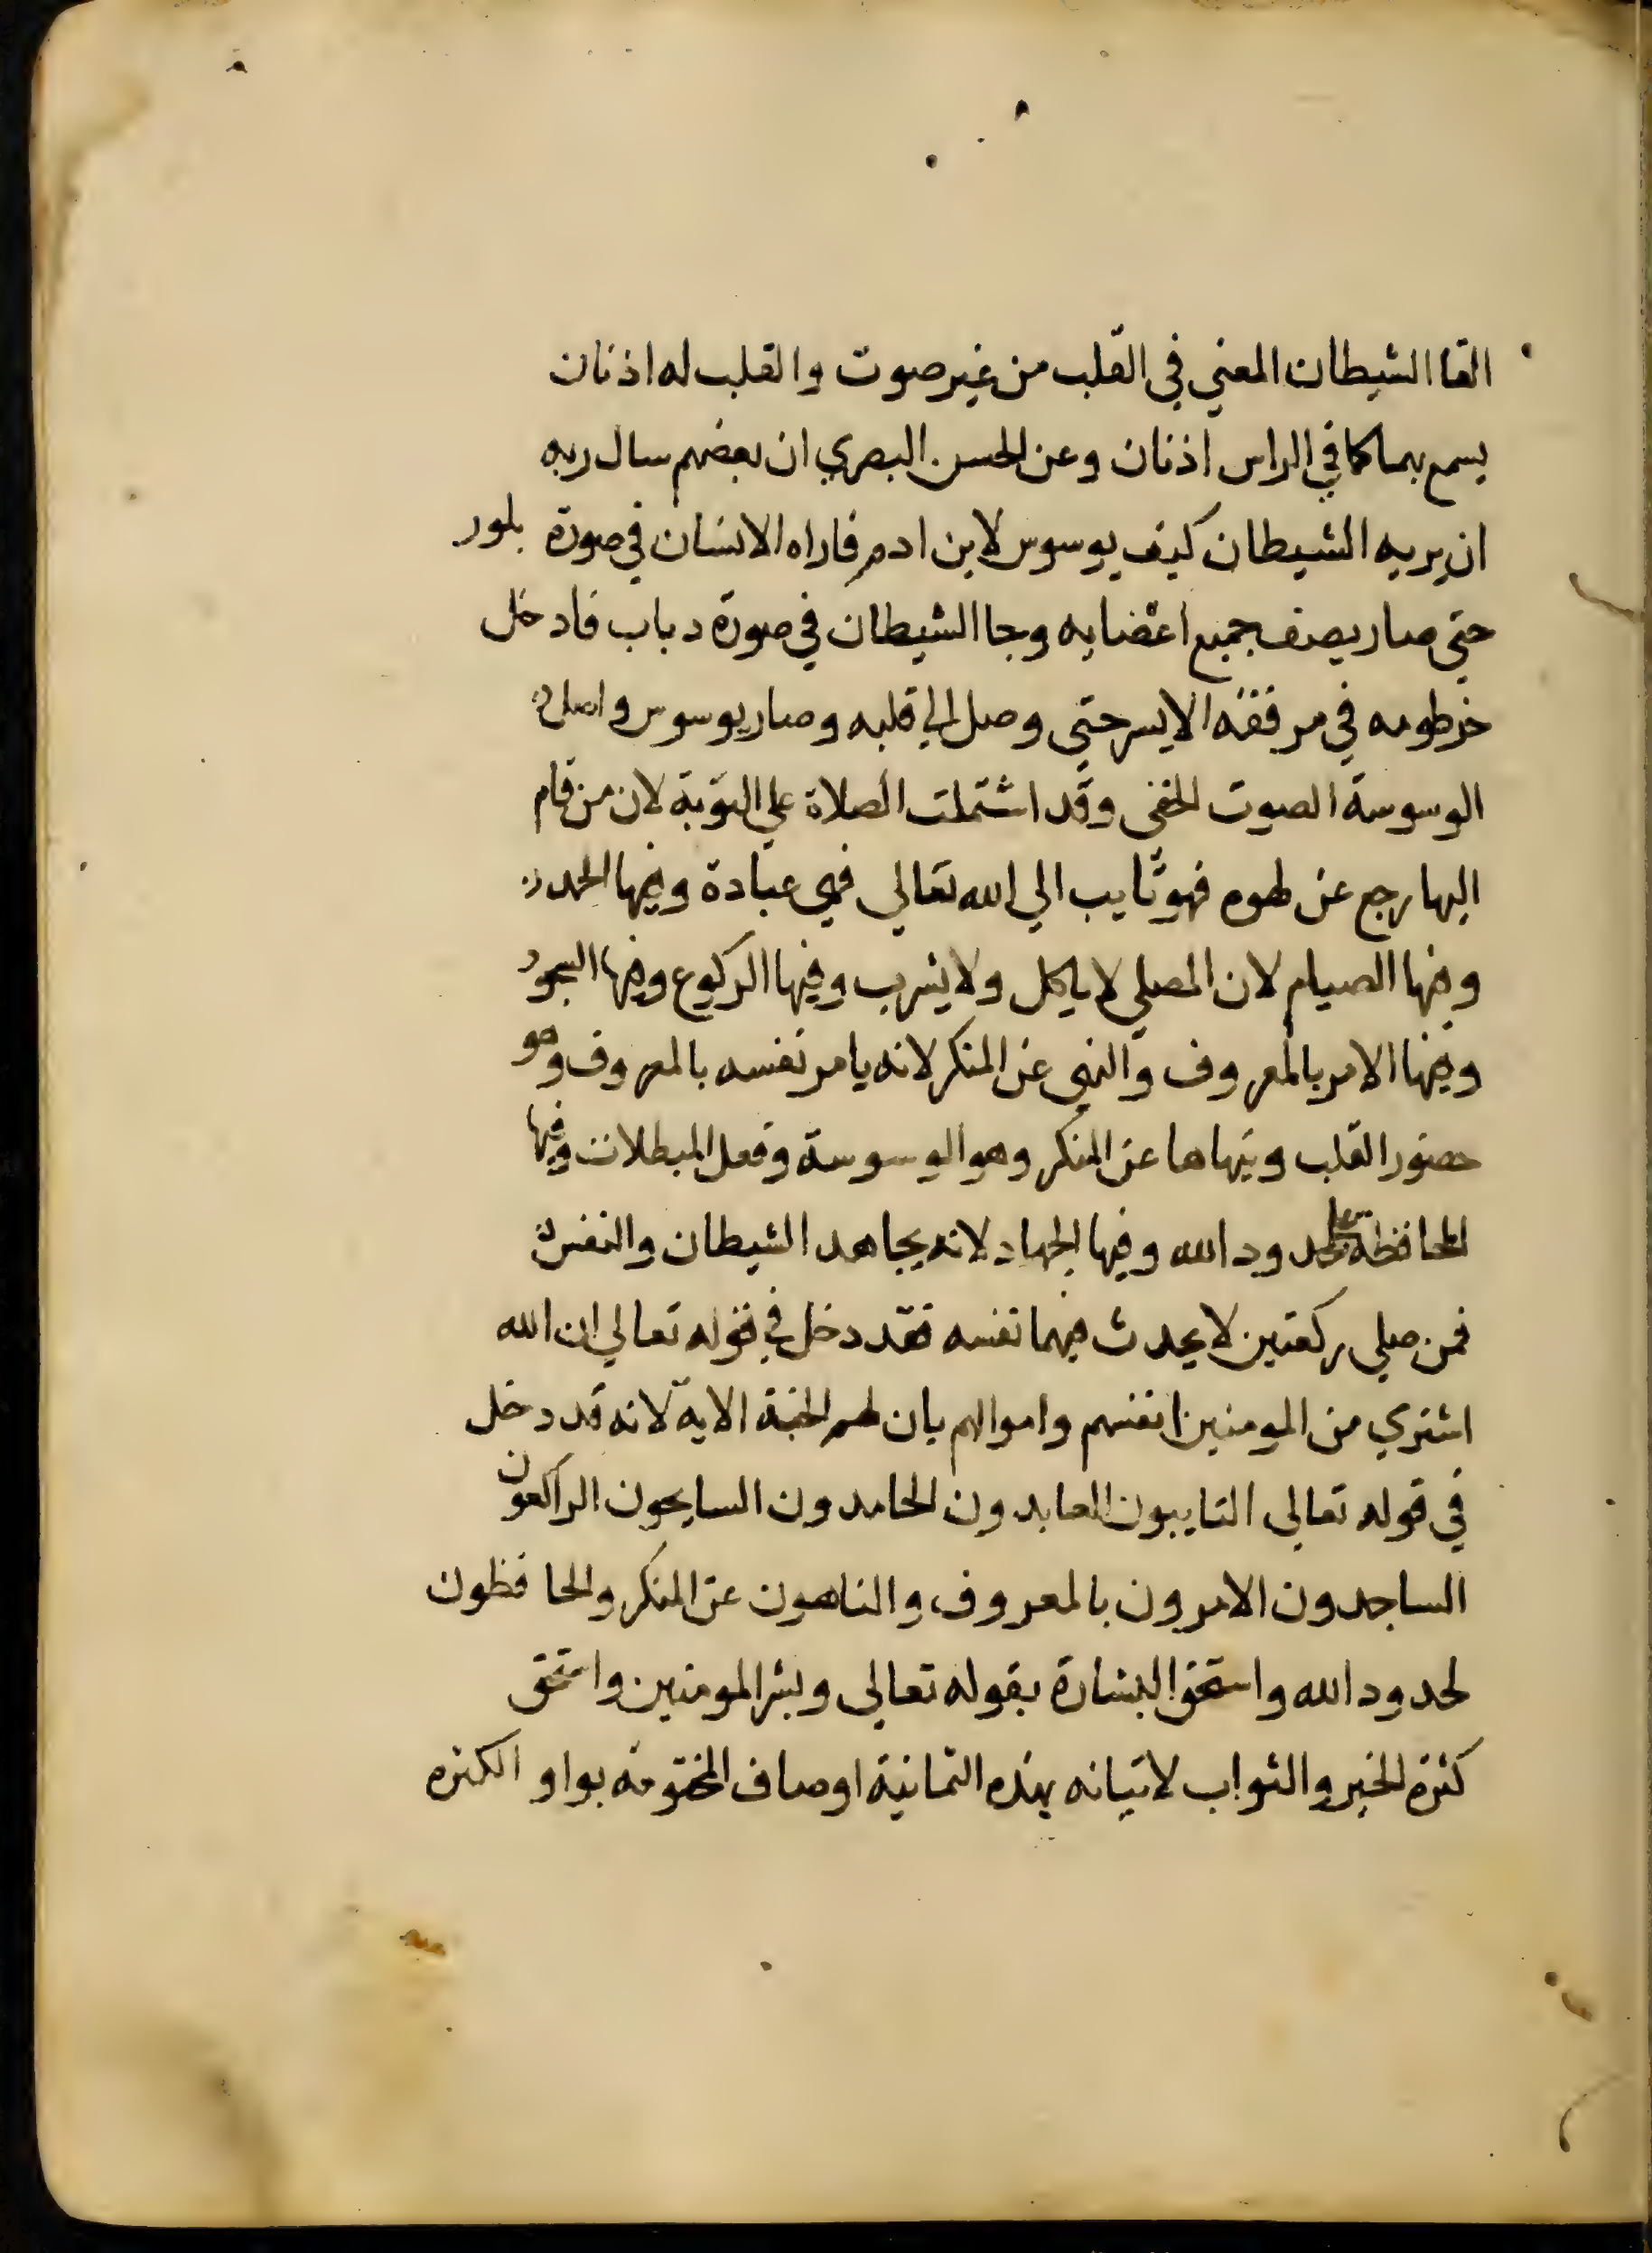 القا الشيطان المعني في القلب من غير صوت والقلب له اذنان
يسمع بهما كما في الراس اذنان وعن الحسن البصري ان بعضهم سال ربه
ان يريه الشيطان كيف يوسوس لابن ادم فاراه الانسان في صورة بلور
حتي صار يصف جميع اعضايه وجا الشيطان في صورة دباب فادخل
خرطومه في مرفقه الايسر حتي وصل الي قلبه وصار يوسوس واصل
الوسوسة الصوت الخفي وقد اشتملت الصلاة علي التوبة لان من قام
اليها رجع عن لهوه فهو تايب الي الله تعالي فهي عبادة وفيها الحمد
وفيها الصيام لان المصلي لا ياكل ولا يشرب وفيها الركوع وفيها السجود
وفيها الامر بالمعروف والنهي عن المنكر لانه يامر نفسه بالمعروف وهو
حضور القلب وينهاها عن المنكر وهو الوسوسة وفعل المبطلات وفيها
المحافظة علي حدود الله وفيها الجهاد لانه يجاهد الشيطان والنفس
فمن صلي ركعتين لا يحدث فيهما نفسه فقد دخل في قوله تعالي ان الله
اشتري من المومنين انفسهم واموالهم بان لهم الجنة الاية لانه قد دخل
في قوله تعالي التايبون العابدون الحامدون السايحون الراكعون
الساجدون الامرون بالمعروف والناهون عن المنكر والحافظون
لحدود الله واستحق البشارة بقوله تعالي وبشر المومنين واستحق
كثرة الخير والثواب لاتيانه بهذه الثمانية اوصاف المختومة بواو الكثرة